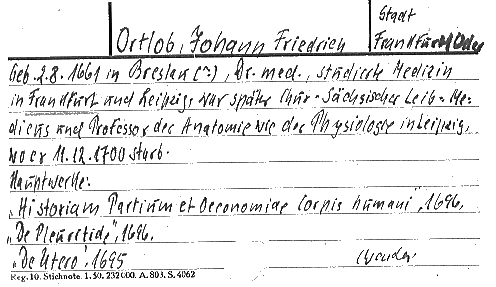 Stadt
Ortlob, Johann Friedrich Frankfurt/Oder
Geb. 2.8.1661 in Breslau (~), Dr. med., studierte Medizin
in Frankfurt und Leipzig, war später Chur-Sächsischer Leib-Me-
dicus und Professor der Anatomie wie der Physiologie in Leipzig,
wo er 11.12.1700 starb.
Hauptwerke:
„Historiam Partium et Oeconomiae Corpis humani", 1696,
„De Pleuritide", 1696.
„De Utero", 1695
Reg. 10. Stichnote. 1. 50. 232000. A. 803. S. 4062